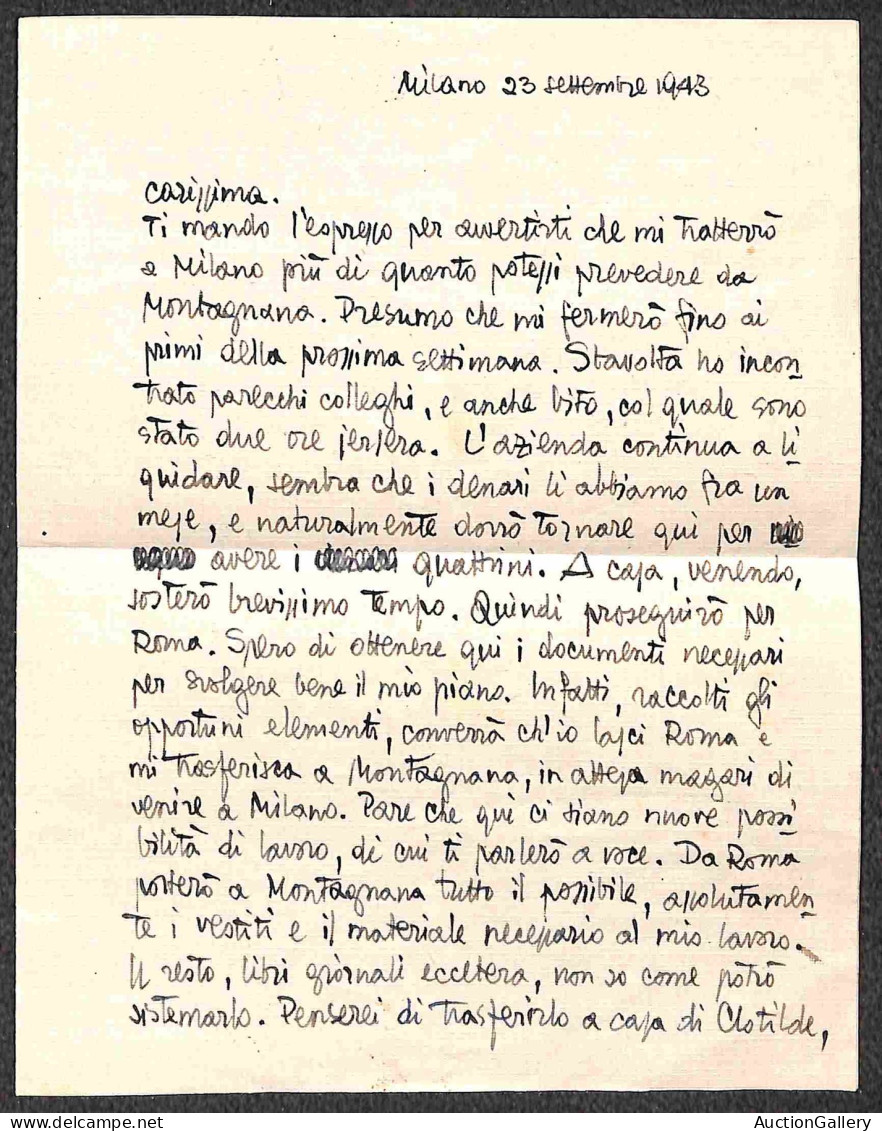 Milano 23 settembre 1943
carissima.
Ti mando l'espresso per avvertirti che mi tratterrò
a Milano più di quanto potessi prevedere da
Montagnana. Presumo che mi fermerò fino ai
primi della prossima settimana. Stavolta ho incon
trato parecchi colleghi, e anche Vito, col quale sono
stato due ore jersera. L'azienda continua a li
quidare, sembra che i denari li abbiamo fra un
mese, e naturalmente dovrò tornare qui per
avere i quattrini. A casa, venendo,
sosterò brevissimo tempo. Quindi proseguirò per
Roma. Spero di ottenere qui i documenti necessari
per svolgere bene il mio piano. Infatti, raccolti gli
opportuni elementi, converrà ch'io lasci Roma e
mi trasferisca a Montagnana, in attesa magari di
venire a Milano. Pare che qui ci siano nuove possi
bilità di lavoro, di cui ti parlerò a voce. Da Roma
porterò a Montagnana tutto il possibile, assolutamen
te i vestiti e il materiale necessario al mio lavoro.
Il resto, libri giornali eccetera, non so come potrò
sistemarlo. Penserei di trasferirlo a casa di Clotilde,
AuctionGallery
www.delcampe.net
AuctionGallery